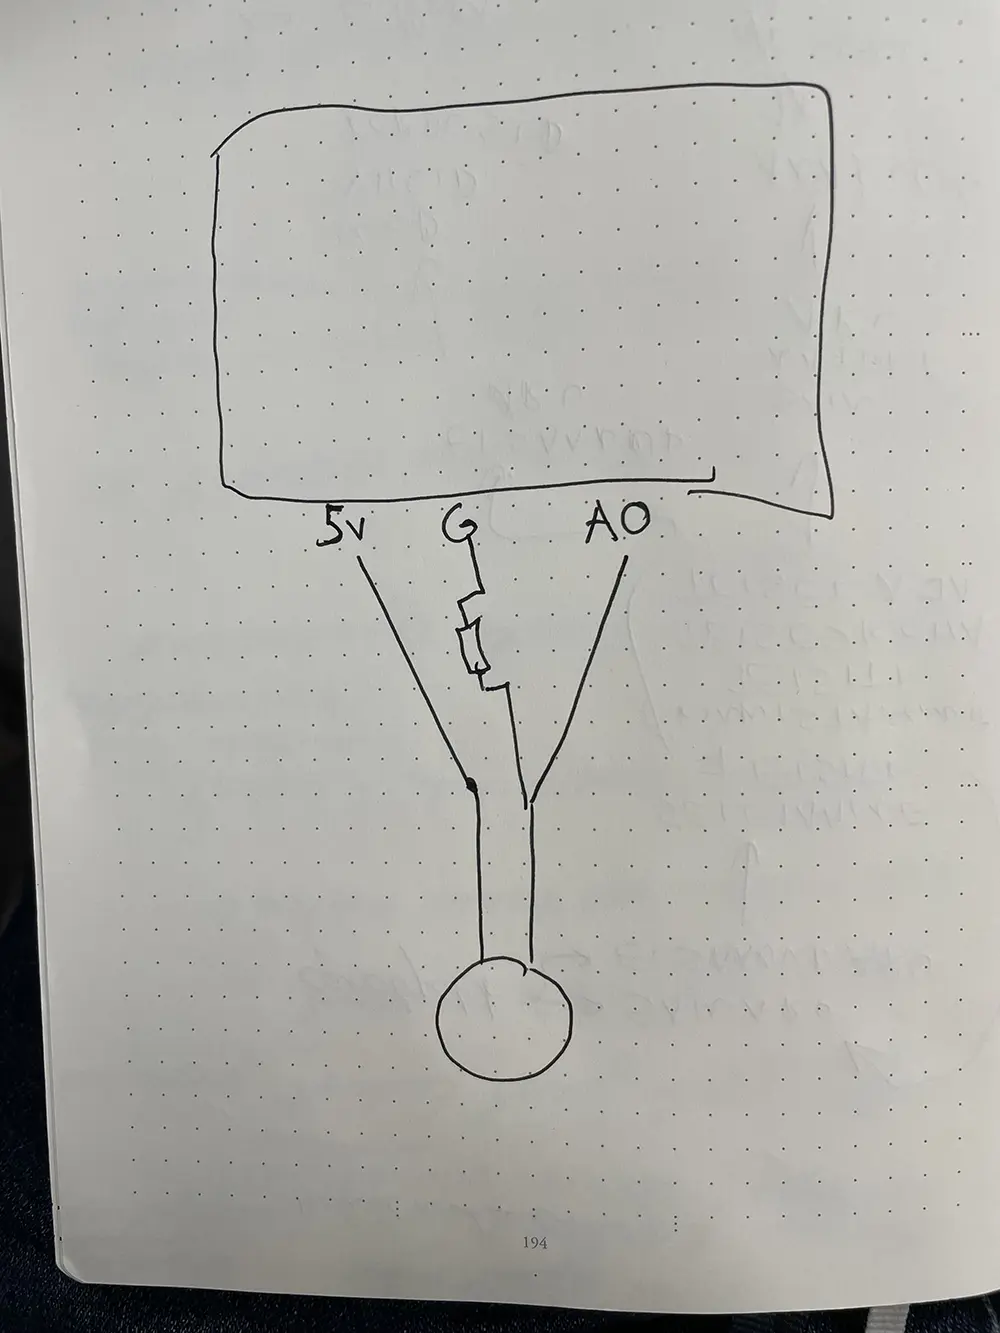 5v G AO
194